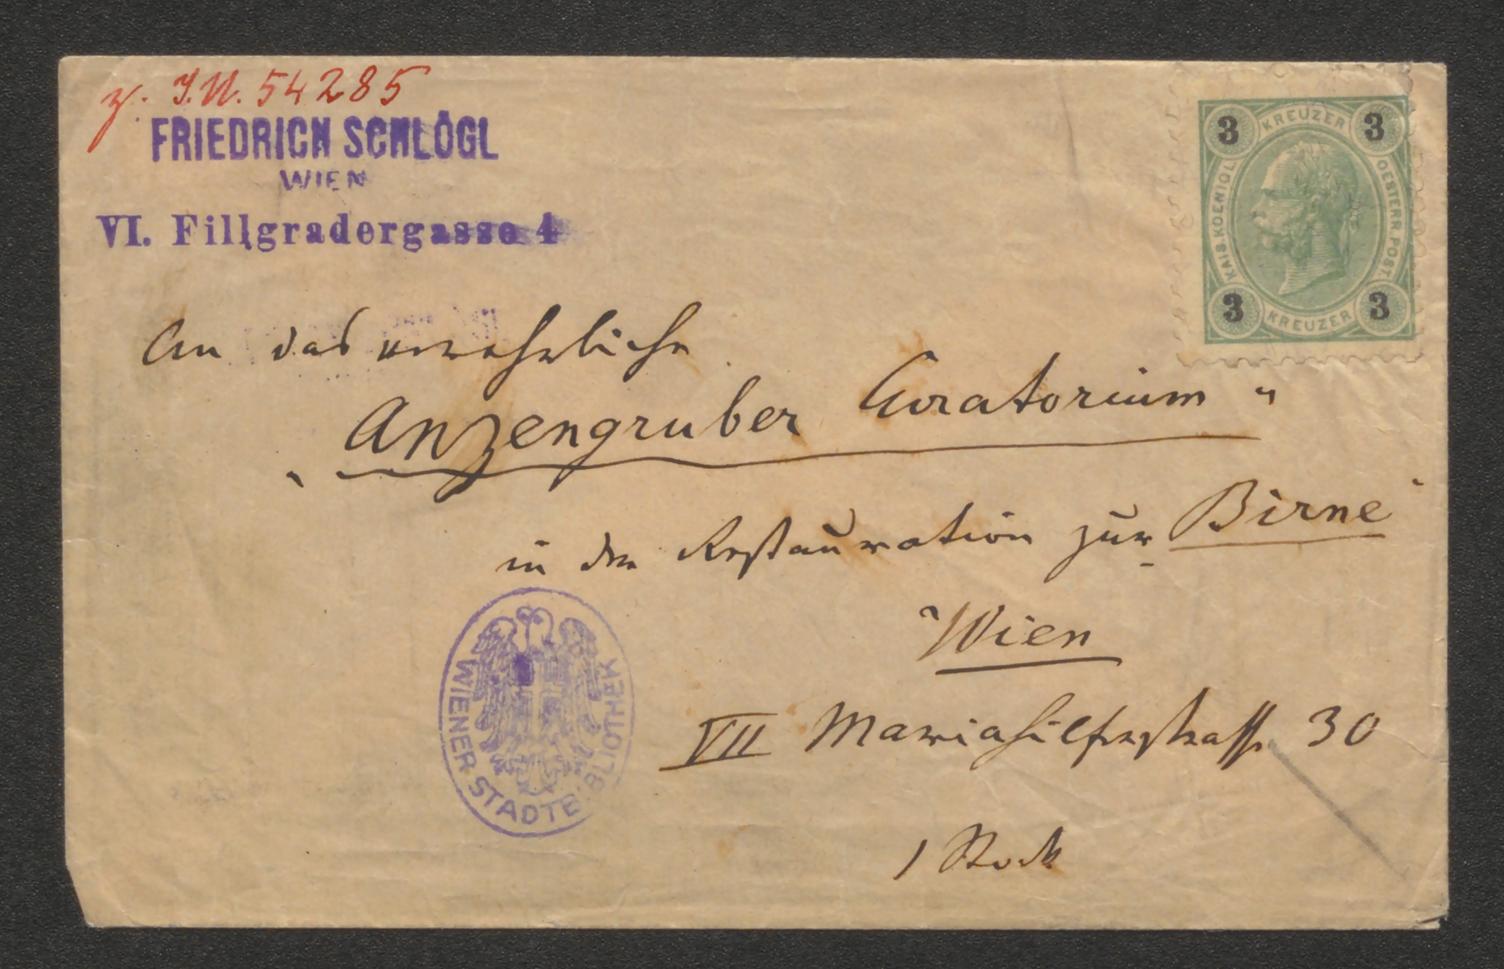 z. I.N. 54285
FRIEDRICH SCHLÖGL
WIEN
VI. Fillgradergasse 4
3 KREUZER 3
KAIS. KOENIGL. OESTERR. POST.
3 KREUZER 3
An das verehrliche
„Anzengruber Curatorium“
in der Restauration zur „Birne“
Wien
VII Mariahilferstrasse 30
1 Stock
WIENER STADTBIBLIOTHEK